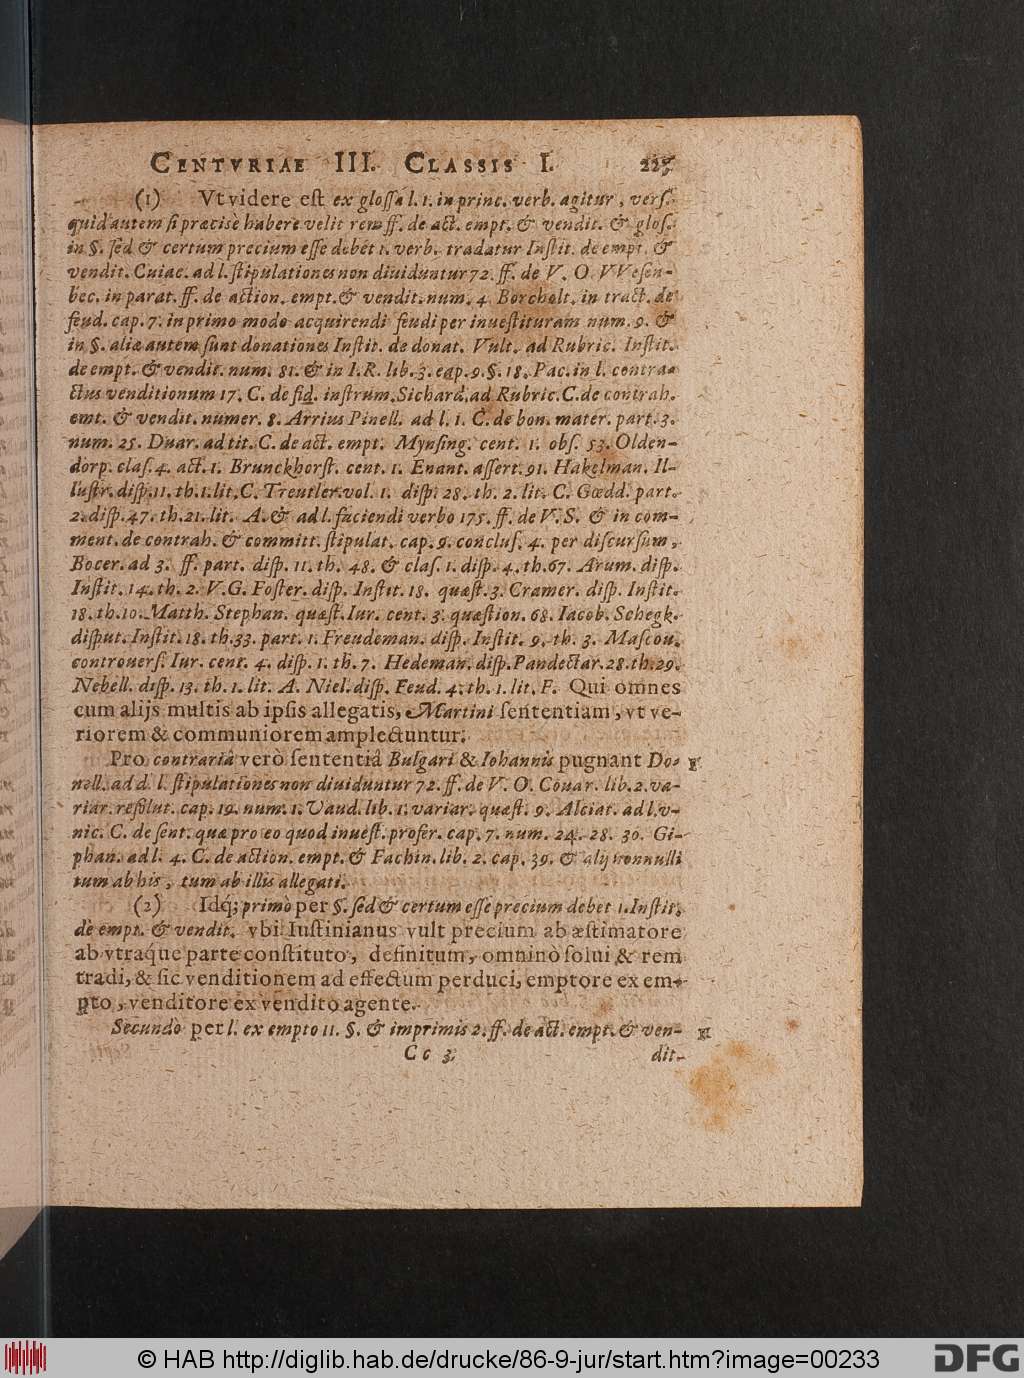 CENTVRIAE III. CLASSIS I.
(1) Vt videre est ex glossâ l. 1. in princ. verb. agitur, vers.
quid autem si præcisè habere velit rem ff. de act. empt. & vendit. & glos.
in §. sed & certum precium esse debet 1. verb. tradatur Instit. de empt. &
vendit. Cuiac. ad l. stipulationes non diuiduntur 72. ff. de V. O. VVesen-
bec. in parat. ff. de action. empt. & vendit. num. 4. Borcholt. in tract. de
feud. cap. 7. in primo modo acquirendi feudi per inuestituram num. 9. &
in §. aliæ autem sunt donationes Instit. de donat. Vult. ad Rubric. Instit.
de empt. & vendit. num. 81. & in I. R. lib. 3. cap. 9. §. 18. Pac. in l. contra-
ctus venditionum 17. C. de fid. instrum. Sichard. ad Rubric. C. de contrah.
emt. & vendit. numer. 8. Arrius Pinell. ad l. 1. C. de bon. mater. part. 3.
num. 25. Duar. ad tit. C. de act. empt. Mynsing. cent. 1. obs. 53. Olden-
dorp. clas. 4. act. 1. Brunckhorst. cent. 1. Enant. assert. 91. Hakelman. Il-
lustr. disp. 11. th. 1. lit. C. Treutler. vol. 1. disp. 28. th. 2. lit. C. Gœdd. part.
2. disp. 47. th. 21. lit. A. & ad l. faciendi verbo 175. ff. de V. S. & in com-
ment. de contrah. & committ. stipulat. cap. 9. conclus. 4. per discursum,
Bocer. ad 3. ff. part. disp. 11. th. 48. & clas. 1. disp. 4. th. 67. Arum. disp.
Instit. 14. th. 2. V. G. Foster. disp. Instit. 18. quæst. 3. Cramer. disp. Instit.
18. th. 10. Matth. Stephan. quæst. Iur. cent. 3. quæstion. 68. Iacob. Schegk.
disput. Instit. 18. th. 33. part. 1. Freudeman. disp. Instit. 9. th. 3. Mascou.
controuers. Iur. cent. 4. disp. 1. th. 7. Hedeman. disp. Pandectar. 28. th. 29.
Nebell. disp. 13. th. 1. lit. A. Niel. disp. Feud. 4. th. 1. lit. F. Qui omnes
cum alijs multis ab ipsis allegatis, Martini sententiam, vt ve-
riorem & communiorem amplectuntur.
Pro contrariâ verò sententiâ Bulgari & Iohannis pugnant Do-
nell. ad d. l. stipulationes non diuiduntur 72. ff. de V. O. Couar. lib. 2. va-
riar. resolut. cap. 19. num. 1. Vaud. lib. 1. variar. quæst. 9. Alciat. ad l. v-
nic. C. de sent. quæ pro eo quod inuest. profer. cap. 7. num. 24. 28. 30. Gi-
phan. ad l. 4. C. de action. empt. & Fachin. lib. 2. cap. 39. & alij nonnulli
tum ab his, tum ab illis allegati.
(2) Idq; primò per §. sed & certum esse precium debet 1. Instit.
de empt. & vendit. vbi Iustinianus vult precium ab æstimatore
ab vtraq́ue parte constituto, definitum, omninò solui & rem
tradi, & sic venditionem ad effectum perduci, emptore ex em-
pto, venditore ex vendito agente.
Secundò per l. ex empto 11. §. & imprimis 2. ff. de act. empt. & ven-
Cc 3 dit.
© HAB http://diglib.hab.de/drucke/86-9-jur/start.htm?image=00233
DFG